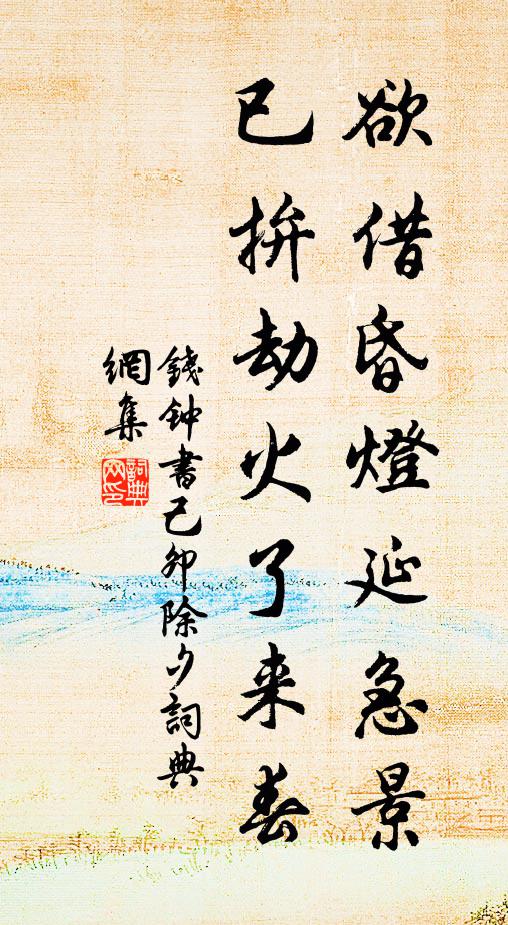 欲借昏燈延急景
已拚劫火了来春
錢鈡書己卯除夕詞典
網集
詞典
网印